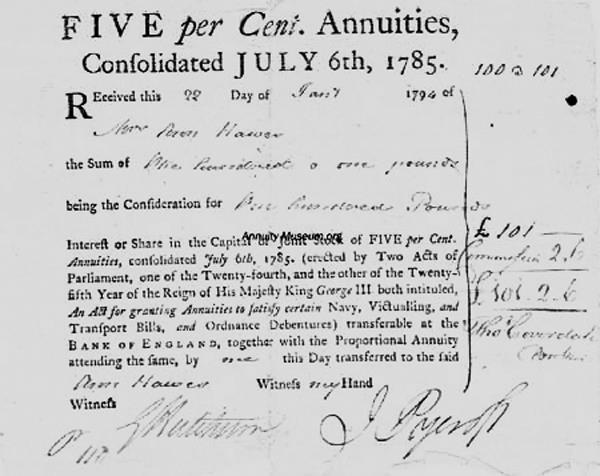 FIVE per Cent. Annuities,
Conſolidated JULY 6th, 1785.
100 a 101
REceived this 22 Day of Jan'y 1794 of
Mrs Ann Hawes
the Sum of One hundred & one pounds
being the Conſideration for One hundred Pounds
£ 101
AnnuityMuseum.org
Intereſt or Share in the Capital or Joint Stock of FIVE per Cent.
Annuities, conſolidated July 6th, 1785. (erected by Two Acts of
Parliament, one of the Twenty-fourth, and the other of the Twenty-
fifth Year of the Reign of His Majeſty King George III. both intituled,
An Act for granting Annuities to ſatisfy certain Navy, Victualling, and
Tranſport Bills, and Ordnance Debentures) transferable at the
BANK OF ENGLAND, together with the Proportional Annuity
attending the ſame, by me this Day transferred to the ſaid
Ann Hawes Witneſs my Hand
Witneſs
Commiſsion 2.6
£ 101.2.6
Thos